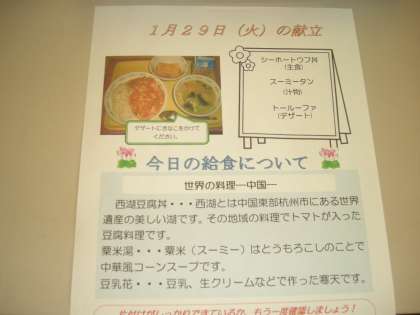 1月29日（火）の献立
シーホートウフ丼
（主食）
スーミータン
（汁物）
トールーファ
（デザート）
デザートにきなこをかけて
ください。
今日の給食について
世界の料理―中国―
西湖豆腐丼・・・西湖とは中国東部杭州市にある世界
遺産の美しい湖です。その地域の料理でトマトが入った
豆腐料理です。
粟米湯・・・粟米（スーミー）はとうもろこしのことで
中華風コーンスープです。
豆乳花・・・豆乳、生クリームなどで作った寒天です。
片付けがしっかりできているか、もう一度確認しましょう！